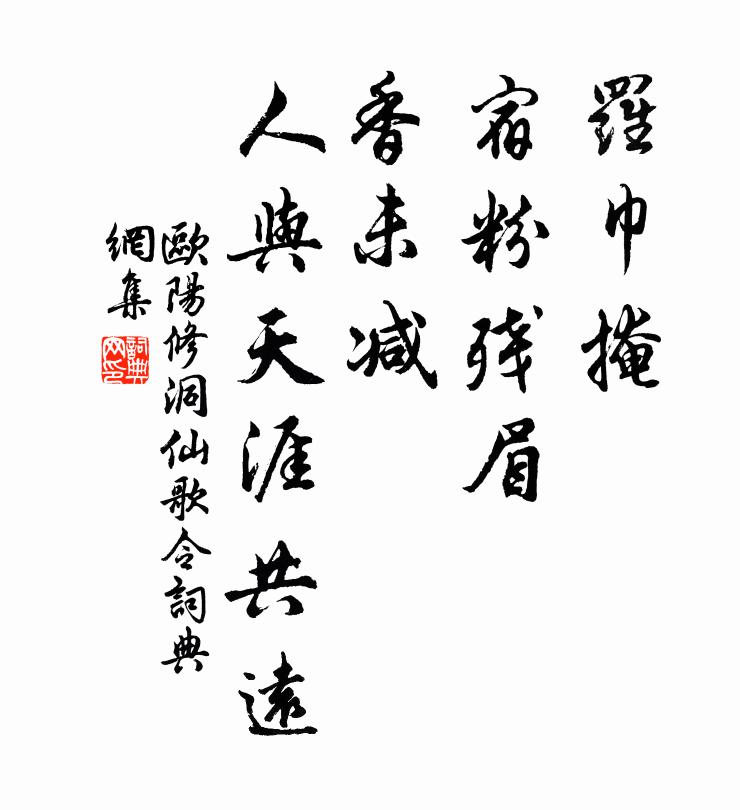 羅巾掩
宿粉残眉
香未减
人與天涯共遠
歐陽修洞仙歌令詞典
網集
詞典
网印